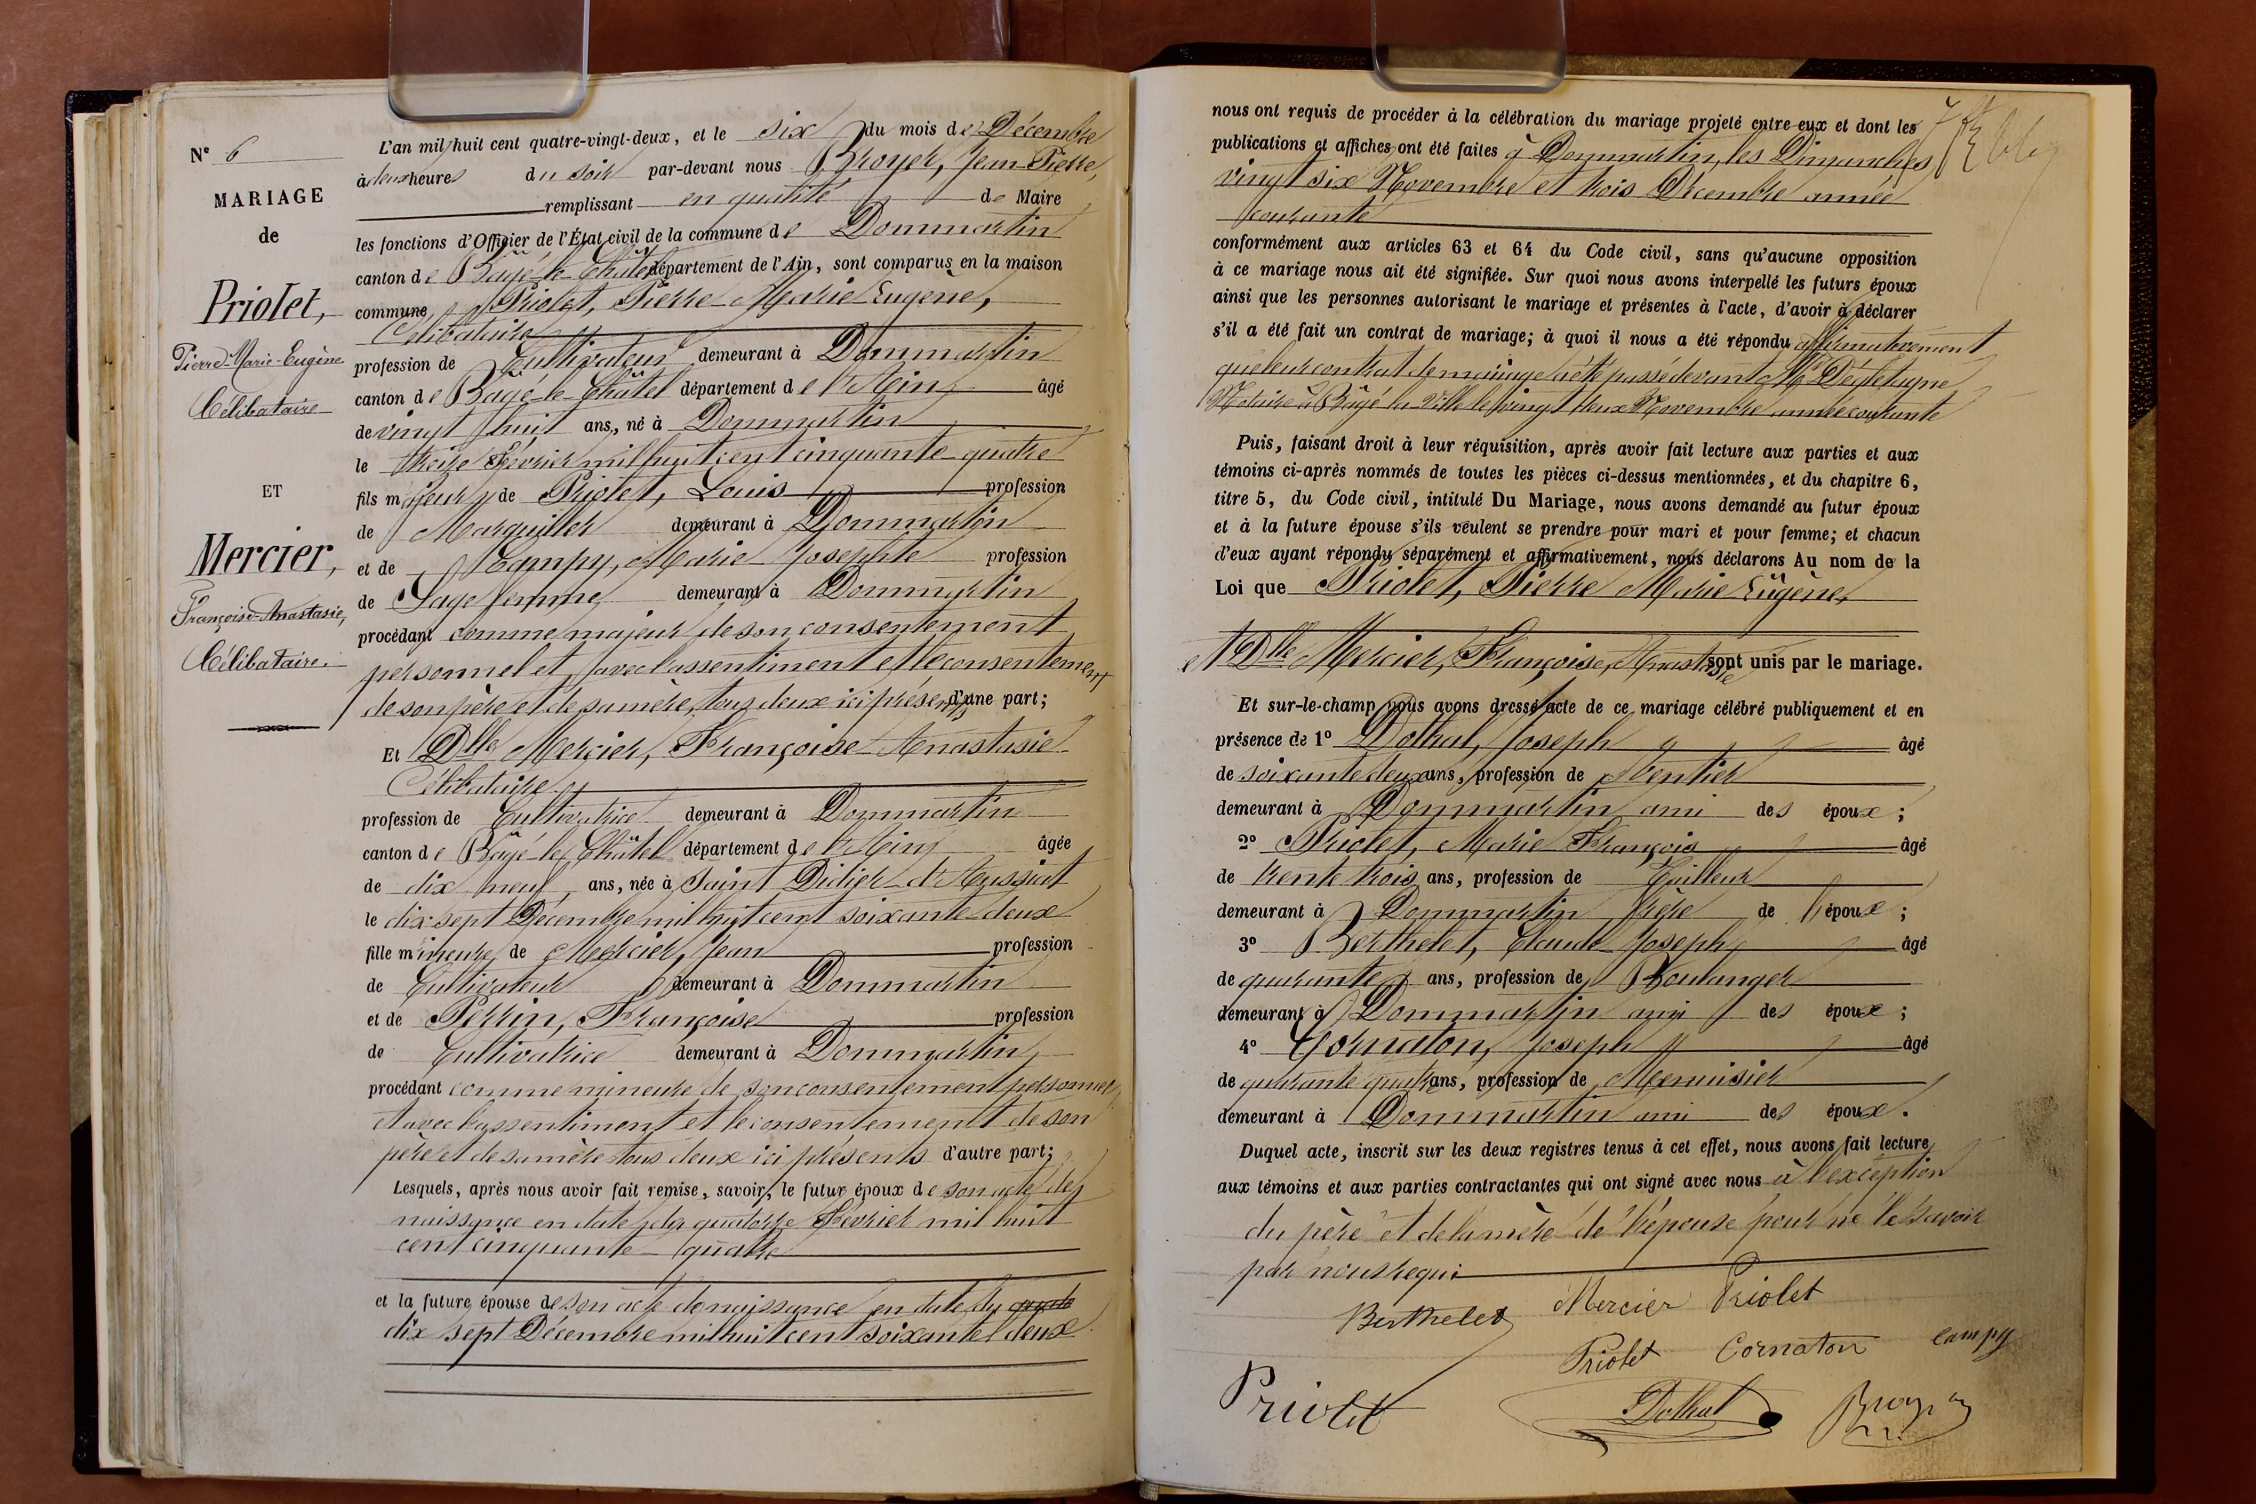 N° 6
MARIAGE
de
Priolet,
Pierre-Marie-Eugène
Célibataire
ET
Mercier,
Françoise-Anastasie,
Célibataire.
L'an mil huit cent quatre-vingt-deux, et le six du mois de Décembre
à deux heures du soir par-devant nous Broyer, Jean-Pierre,
remplissant en qualité de Maire
les fonctions d'Officier de l'État civil de la commune de Dommartin
canton de Bâgé-le-Châtel département de l'Ain, sont comparus en la maison
commune, Priolet, Pierre Marie Eugène,
Célibataire
profession de Cultivateur demeurant à Dommartin
canton de Bâgé-le-Châtel département de l'Ain âgé
de vingt huit ans, né à Dommartin
le treize Février mil huit cent cinquante-quatre
fils majeur de Priolet, Louis profession
de Marguiller demeurant à Dommartin
et de Campy, Marie Josephte profession
de Sage femme demeurant à Dommartin
procédant comme majeur de son consentement
personnel et avec l'assentiment et le consentement
de son père et de sa mère, tous deux ici présents d'une part;
Et Dlle Mercier, Françoise Anastasie
Célibataire
profession de Cultivatrice demeurant à Dommartin
canton de Bâgé-le-Châtel département de l'Ain âgée
de dix neuf ans, née à Saint Didier d'Aussiat
le dix-sept Décembre mil huit cent soixante-deux
fille mineure de Mercier, Jean profession
de Cultivateur demeurant à Dommartin
et de Perrin, Françoise profession
de Cultivatrice demeurant à Dommartin
procédant comme mineure de son consentement personnel
et avec l'assentiment et le consentement de son
père et de sa mère tous deux ici présents d'autre part;
Lesquels, après nous avoir fait remise, savoir, le futur époux de son acte de
naissance en date du quatorze Février mil huit
cent cinquante-quatre
et la future épouse de son acte de naissance en date du
dix sept Décembre mil huit cent soixante deux
nous ont requis de procéder à la célébration du mariage projeté entre eux et dont les
publications et affiches ont été faites à Dommartin, les Dimanches
vingt six Novembre et trois Décembre année
courante
conformément aux articles 63 et 64 du Code civil, sans qu'aucune opposition
à ce mariage nous ait été signifiée. Sur quoi nous avons interpellé les futurs époux
ainsi que les personnes autorisant le mariage et présentes à l'acte, d'avoir à déclarer
s'il a été fait un contrat de mariage; à quoi il nous a été répondu affirmativement
que leur contrat de mariage a été passé devant Me
Notaire à Bâgé la Ville le vingt deux Novembre année courante
Puis, faisant droit à leur réquisition, après avoir fait lecture aux parties et aux
témoins ci-après nommés de toutes les pièces ci-dessus mentionnées, et du chapitre 6,
titre 5, du Code civil, intitulé Du Mariage, nous avons demandé au futur époux
et à la future épouse s'ils veulent se prendre pour mari et pour femme; et chacun
d'eux ayant répondu séparément et affirmativement, nous déclarons Au nom de la
Loi que Priolet, Pierre Marie Eugène,
et Dlle Mercier, Françoise, Anastasie sont unis par le mariage.
Et sur-le-champ nous avons dressé acte de ce mariage célébré publiquement et en
présence de 1° Dothal, Joseph âgé
de soixante deux ans, profession de Rentier
demeurant à Dommartin ami des époux;
2° Priolet, Marie François âgé
de trente trois ans, profession de Tailleur
demeurant à Dommartin frère de l'époux;
3° Berthelet, Claude Joseph âgé
de quarante ans, profession de Boulanger
demeurant à Dommartin ami des époux;
4° Cornaton, Joseph âgé
de quarante quatre ans, profession de Menuisier
demeurant à Dommartin ami des époux.
Duquel acte, inscrit sur les deux registres tenus à cet effet, nous avons fait lecture
aux témoins et aux parties contractantes qui ont signé avec nous à l'exception
du père et de la mère de l'épouse pour ne le savoir
par nous requis
Berthelet Mercier Priolet
Priolet Cornaton Campy
Priolet Dothal Broyer